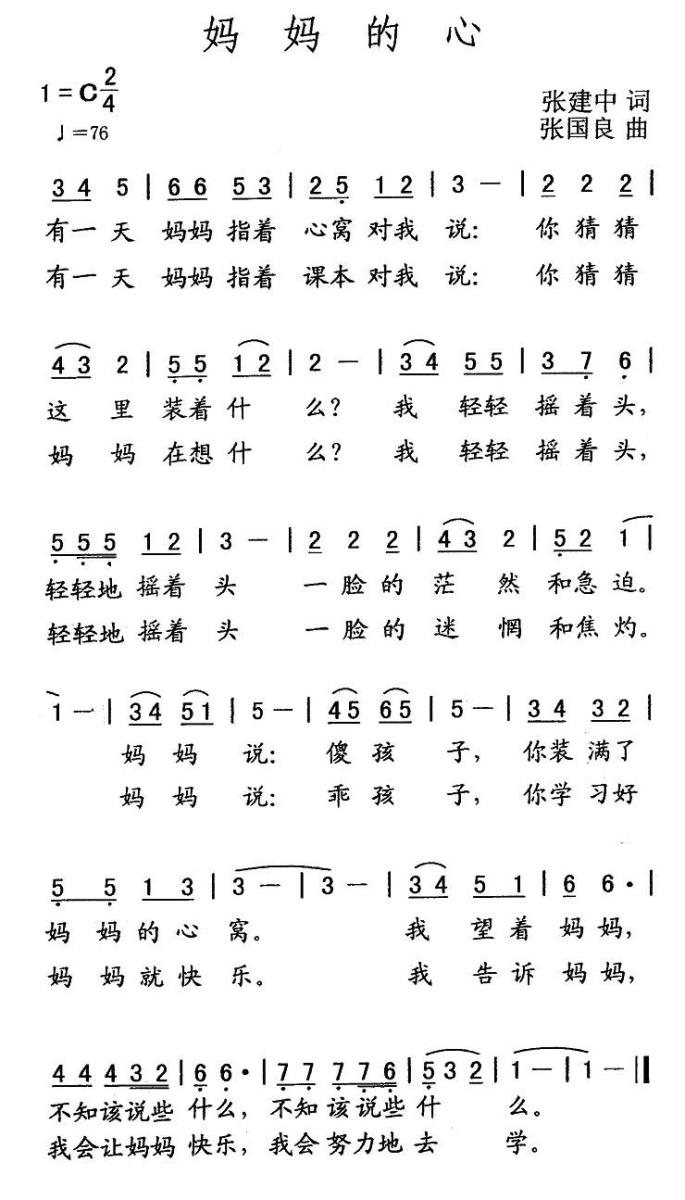 妈妈的心
1=C 2/4
♩=76
张建中 词
张国良 曲
3 4 5 | 6 6 5 3 | 2 5 1 2 | 3 — | 2 2 2 |
有一天 妈妈指着 心窝对我 说: 你猜猜
有一天 妈妈指着 课本对我 说: 你猜猜
4 3 2 | 5 5 1 2 | 2 — | 3 4 5 5 | 3 7 6 |
这里 装着什么? 我轻轻 摇着头,
妈妈 在想什么? 我轻轻 摇着头,
5 5 5 1 2 | 3 — | 2 2 2 | 4 3 2 | 5 2 1 |
轻轻地 摇着 头 一脸的 茫然 和急迫。
轻轻地 摇着 头 一脸的 迷惘 和焦灼。
1 — | 3 4 5 1 | 5 — | 4 5 6 5 | 5 — | 3 4 3 2 |
妈妈 说: 傻孩 子, 你装满了
妈妈 说: 乖孩 子, 你学习好
5 5 1 3 | 3 — | 3 — | 3 4 5 1 | 6 6· |
妈妈的心 窝。 我望着 妈妈,
妈妈就快 乐。 我告诉 妈妈,
4 4 4 3 2 | 6 6· | 7 7 7 7 6 | 5 3 2 | 1 — | 1 — ‖
不知该说些 什么, 不知该说些 什 么。
我会让妈妈 快乐, 我会努力地 去 学。